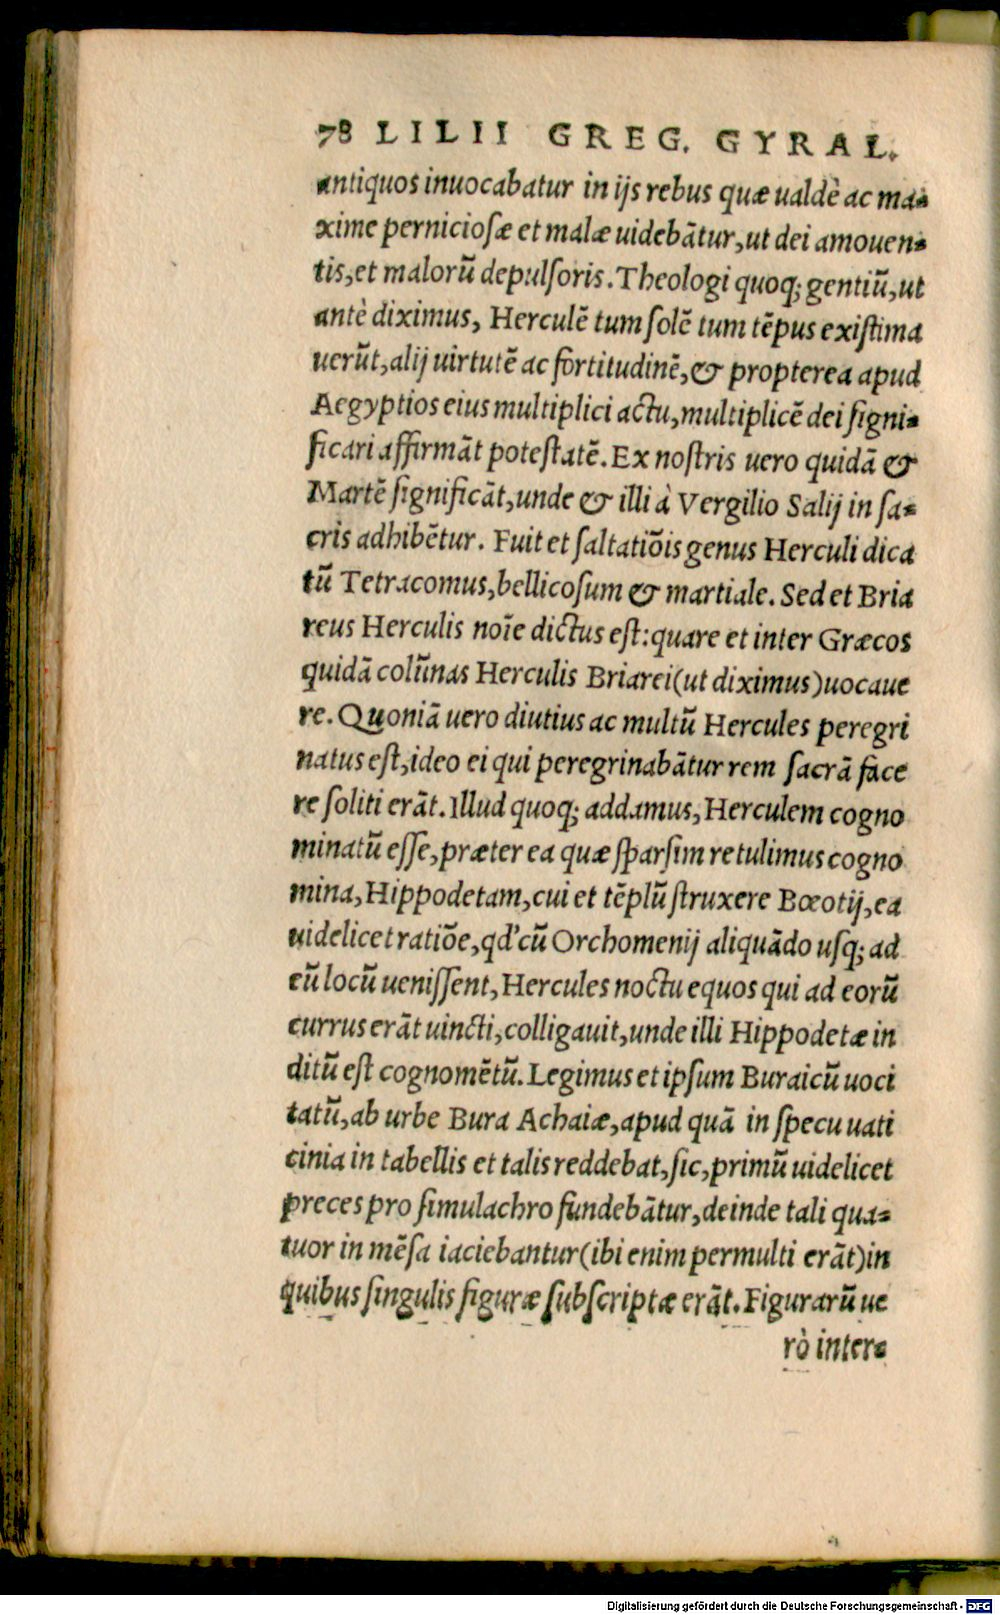 78 LILII GREG. GYRAL.
antiquos inuocabatur in ijs rebus quæ ualdè ac ma-
xime perniciosæ et malæ uidebãtur, ut dei amouen-
tis, et malorũ depulsoris. Theologi quoq; gentiũ, ut
antè diximus, Herculẽ tum solẽ tum tẽpus existima
uerũt, alij uirtutẽ ac fortitudinẽ, & propterea apud
Aegyptios eius multiplici actu, multiplicẽ dei signi-
ficari affirmãt potestatẽ. Ex nostris uero quidã &
Martẽ significãt, unde & illi à Vergilio Salij in sa-
cris adhibẽtur. Fuit et saltatiõis genus Herculi dica
tũ Tetracomus, bellicosum & martiale. Sed et Bria
reus Herculis noĩe dictus est: quare et inter Græcos
quidã colũnas Herculis Briarei (ut diximus) uocaue
re. Quoniã uero diutius ac multũ Hercules peregri
natus est, ideo ei qui peregrinabãtur rem sacrã face
re soliti erãt. Illud quoq; addamus, Herculem cogno
minatũ esse, præter ea quæ sparsim retulimus cogno
mina, Hippodetam, cui et tẽplũ struxere Bœotij, ea
uidelicet ratiõe, qd' cũ Orchomenij aliquãdo usq; ad
eũ locũ uenissent, Hercules noctu equos qui ad eorũ
currus erãt uincti, colligauit, unde illi Hippodetæ in
ditũ est cognomẽtũ. Legimus et ipsum Buraicũ uoci
tatũ, ab urbe Bura Achaiæ, apud quã in specu uati
cinia in tabellis et talis reddebat, sic, primũ uidelicet
preces pro simulachro fundebãtur, deinde tali qua-
tuor in mẽsa iaciebantur (ibi enim permulti erãt) in
quibus singulis figuræ subscriptæ erãt. Figurarũ ue
rò inter-
Digitalisierung gefördert durch die Deutsche Forschungsgemeinschaft - DFG